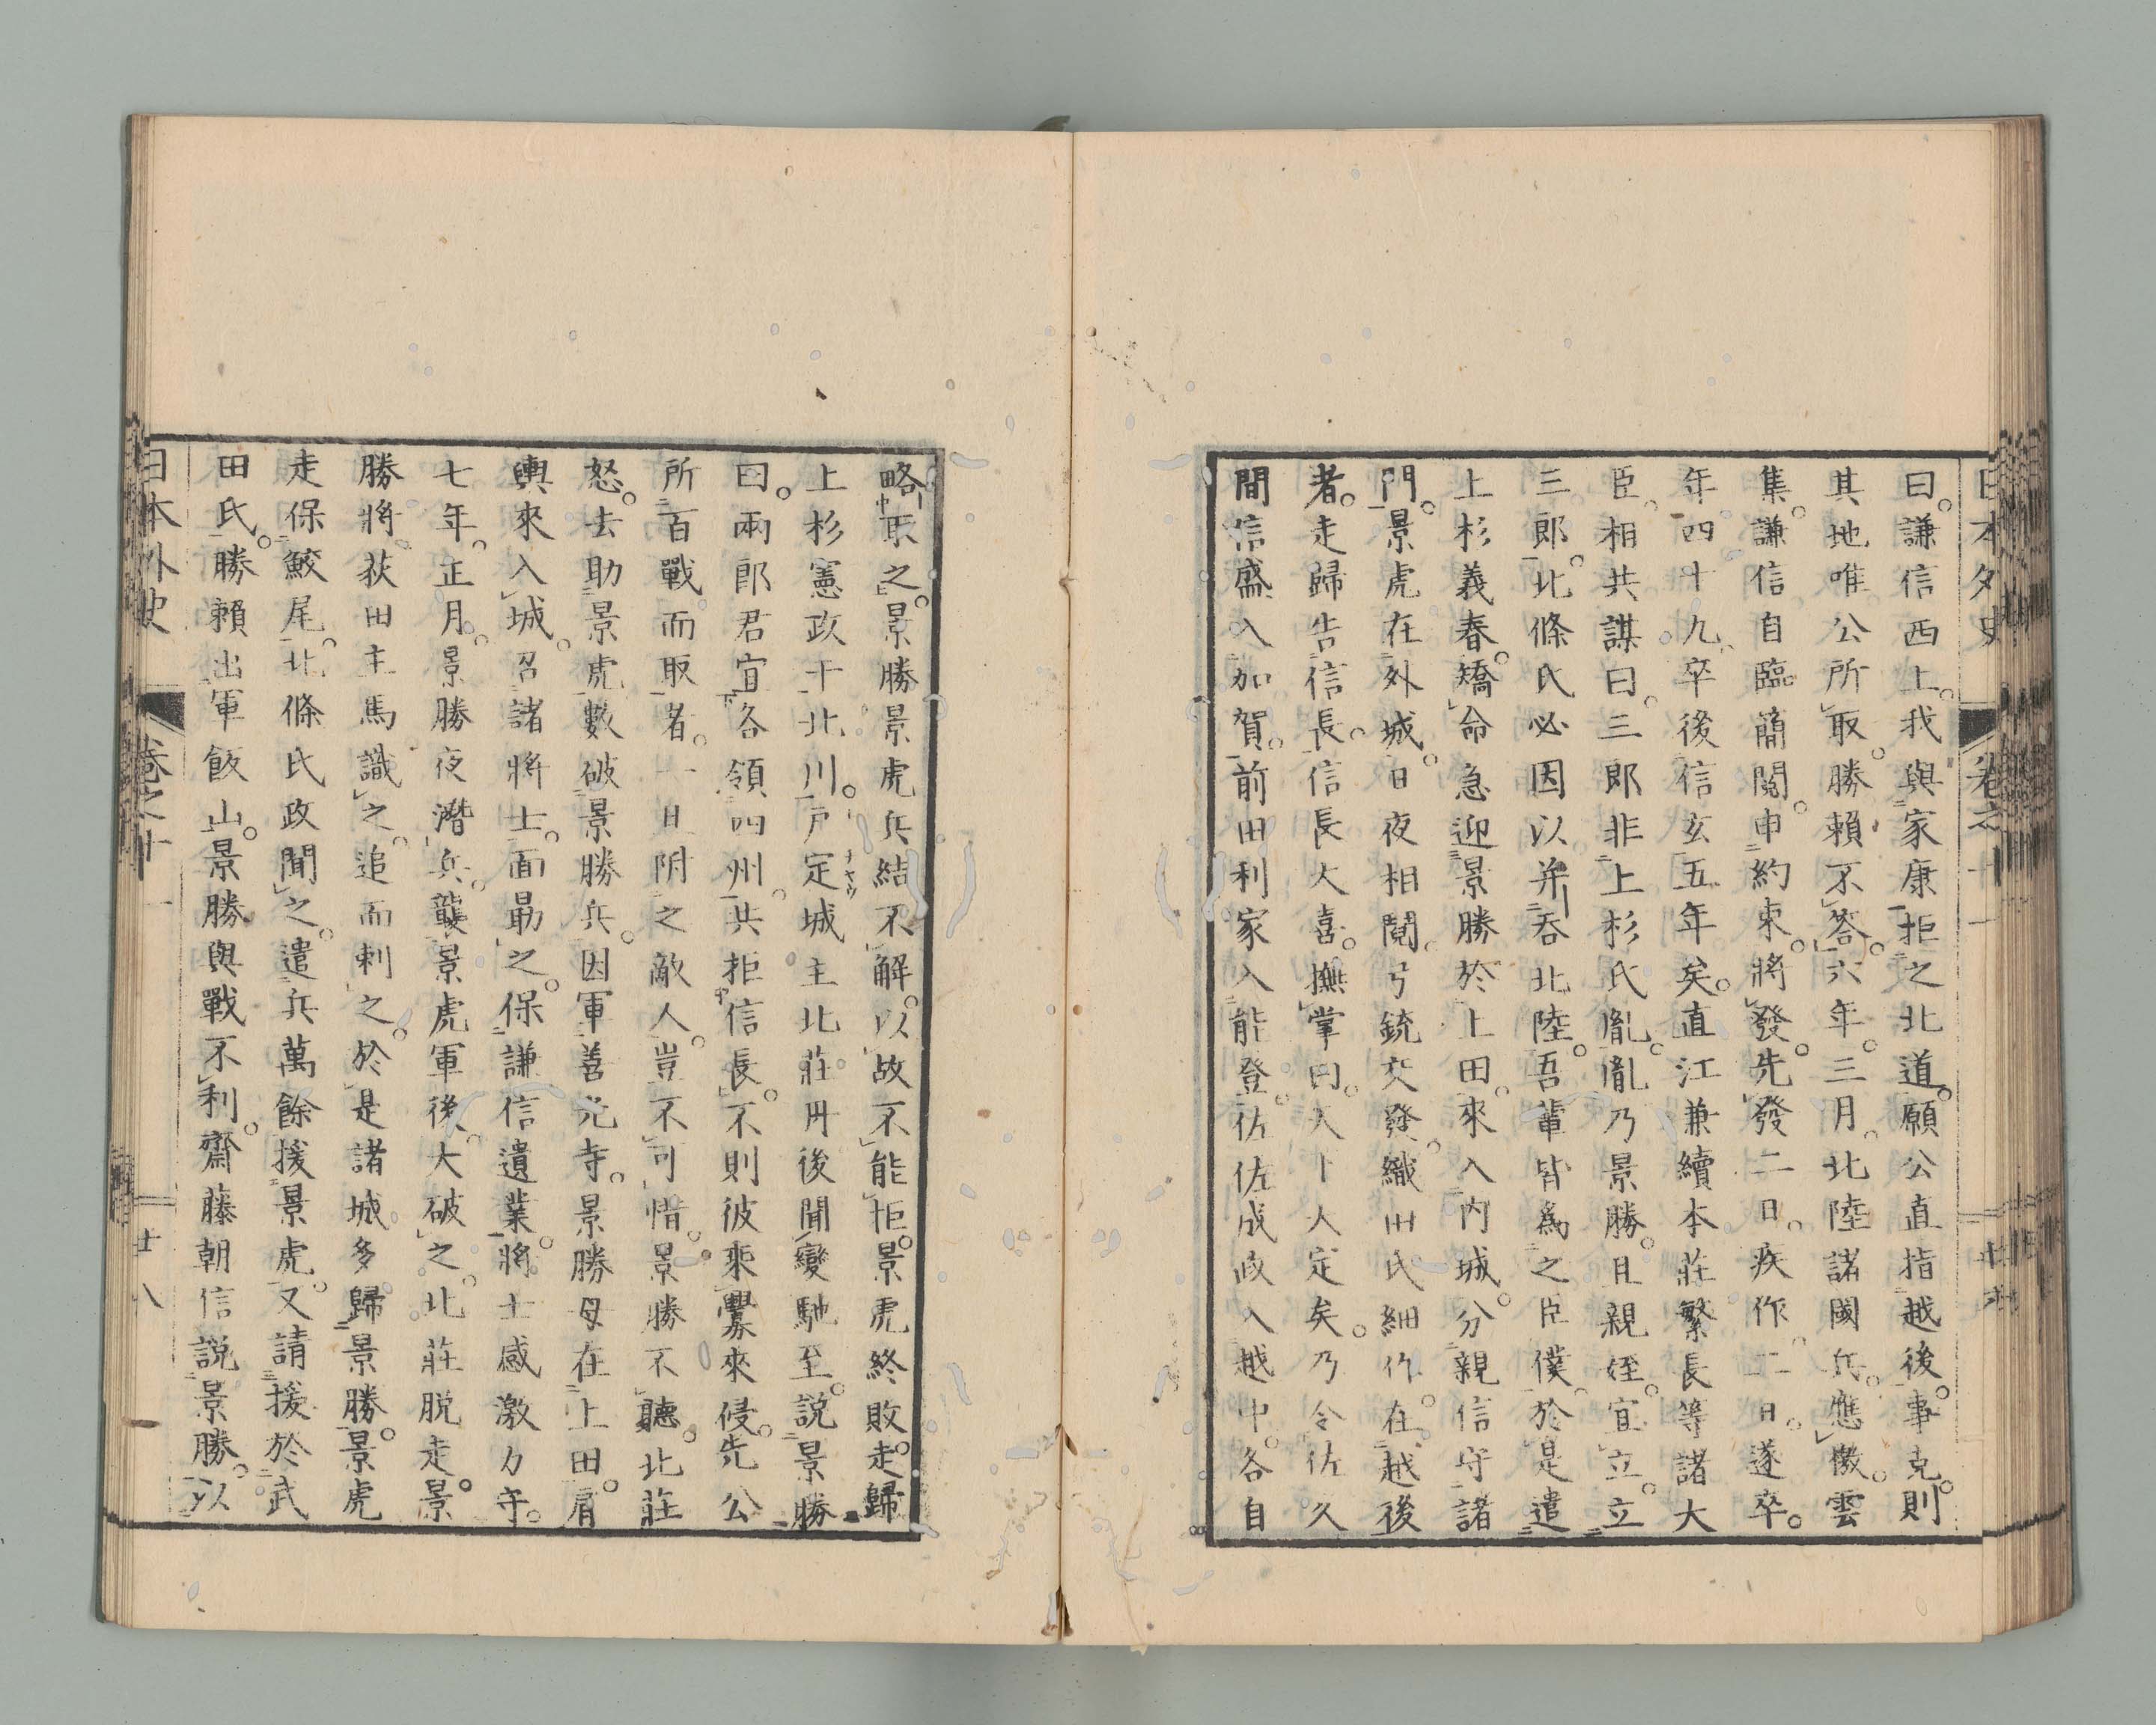 日本外史 卷之十一
曰。謙信西上。我與家康拒之北道。願公直指越後。事克。則
其地唯公所取。勝賴不答。六年。三月。北陸諸國兵。應檄雲
集。謙信自臨。簡閱。申約束。將發。先發二日。疾作。二日。遂卒。
年四十九。卒後信玄五年矣。直江兼續本莊繁長等諸大
臣。相共謀曰。三郎非上杉氏胤。胤乃景勝。且親姪。宜立。立
三郎。北條氏必因以并吞北陸。吾輩皆爲之臣僕。於是遣
上杉義春。矯命急迎景勝於上田。來入內城。分親信守諸
門。景虎在外城。日夜相鬩。弓銃交發。織田氏細作。在越後
者。走歸告信長。信長大喜。撫掌曰。天下大定矣。乃令佐久
間信盛入加賀。前田利家入能登。佐佐成政入越中。各自
略取之。景勝景虎兵結不解。以故不能拒。景虎終敗走。歸
上杉憲政于北川。戶定城主北莊丹後聞變馳至。說景勝
曰。兩郎君宜各領四州。共拒信長。不則彼乘釁來侵。先公
所百戰而取者。一旦附之敵人。豈不可惜。景勝不聽。北莊
怒。去助景虎。數破景勝兵。因軍善光寺。景勝母在上田。肩
輿來入城。召諸將士。面勗之。保謙信遺業。將士感激力守。
七年。正月。景勝夜潛兵。襲景虎軍後。大破之。北莊脫走。景
勝將。荻田主馬識之。追而刺之。於是諸城多歸景勝。景虎
走保鮫尾。北條氏政聞之。遣兵萬餘援景虎。又請援於武
田氏。勝賴出軍飯山。景勝與戰不利。齋藤朝信說景勝。以
日本外史 卷之十一 廿八